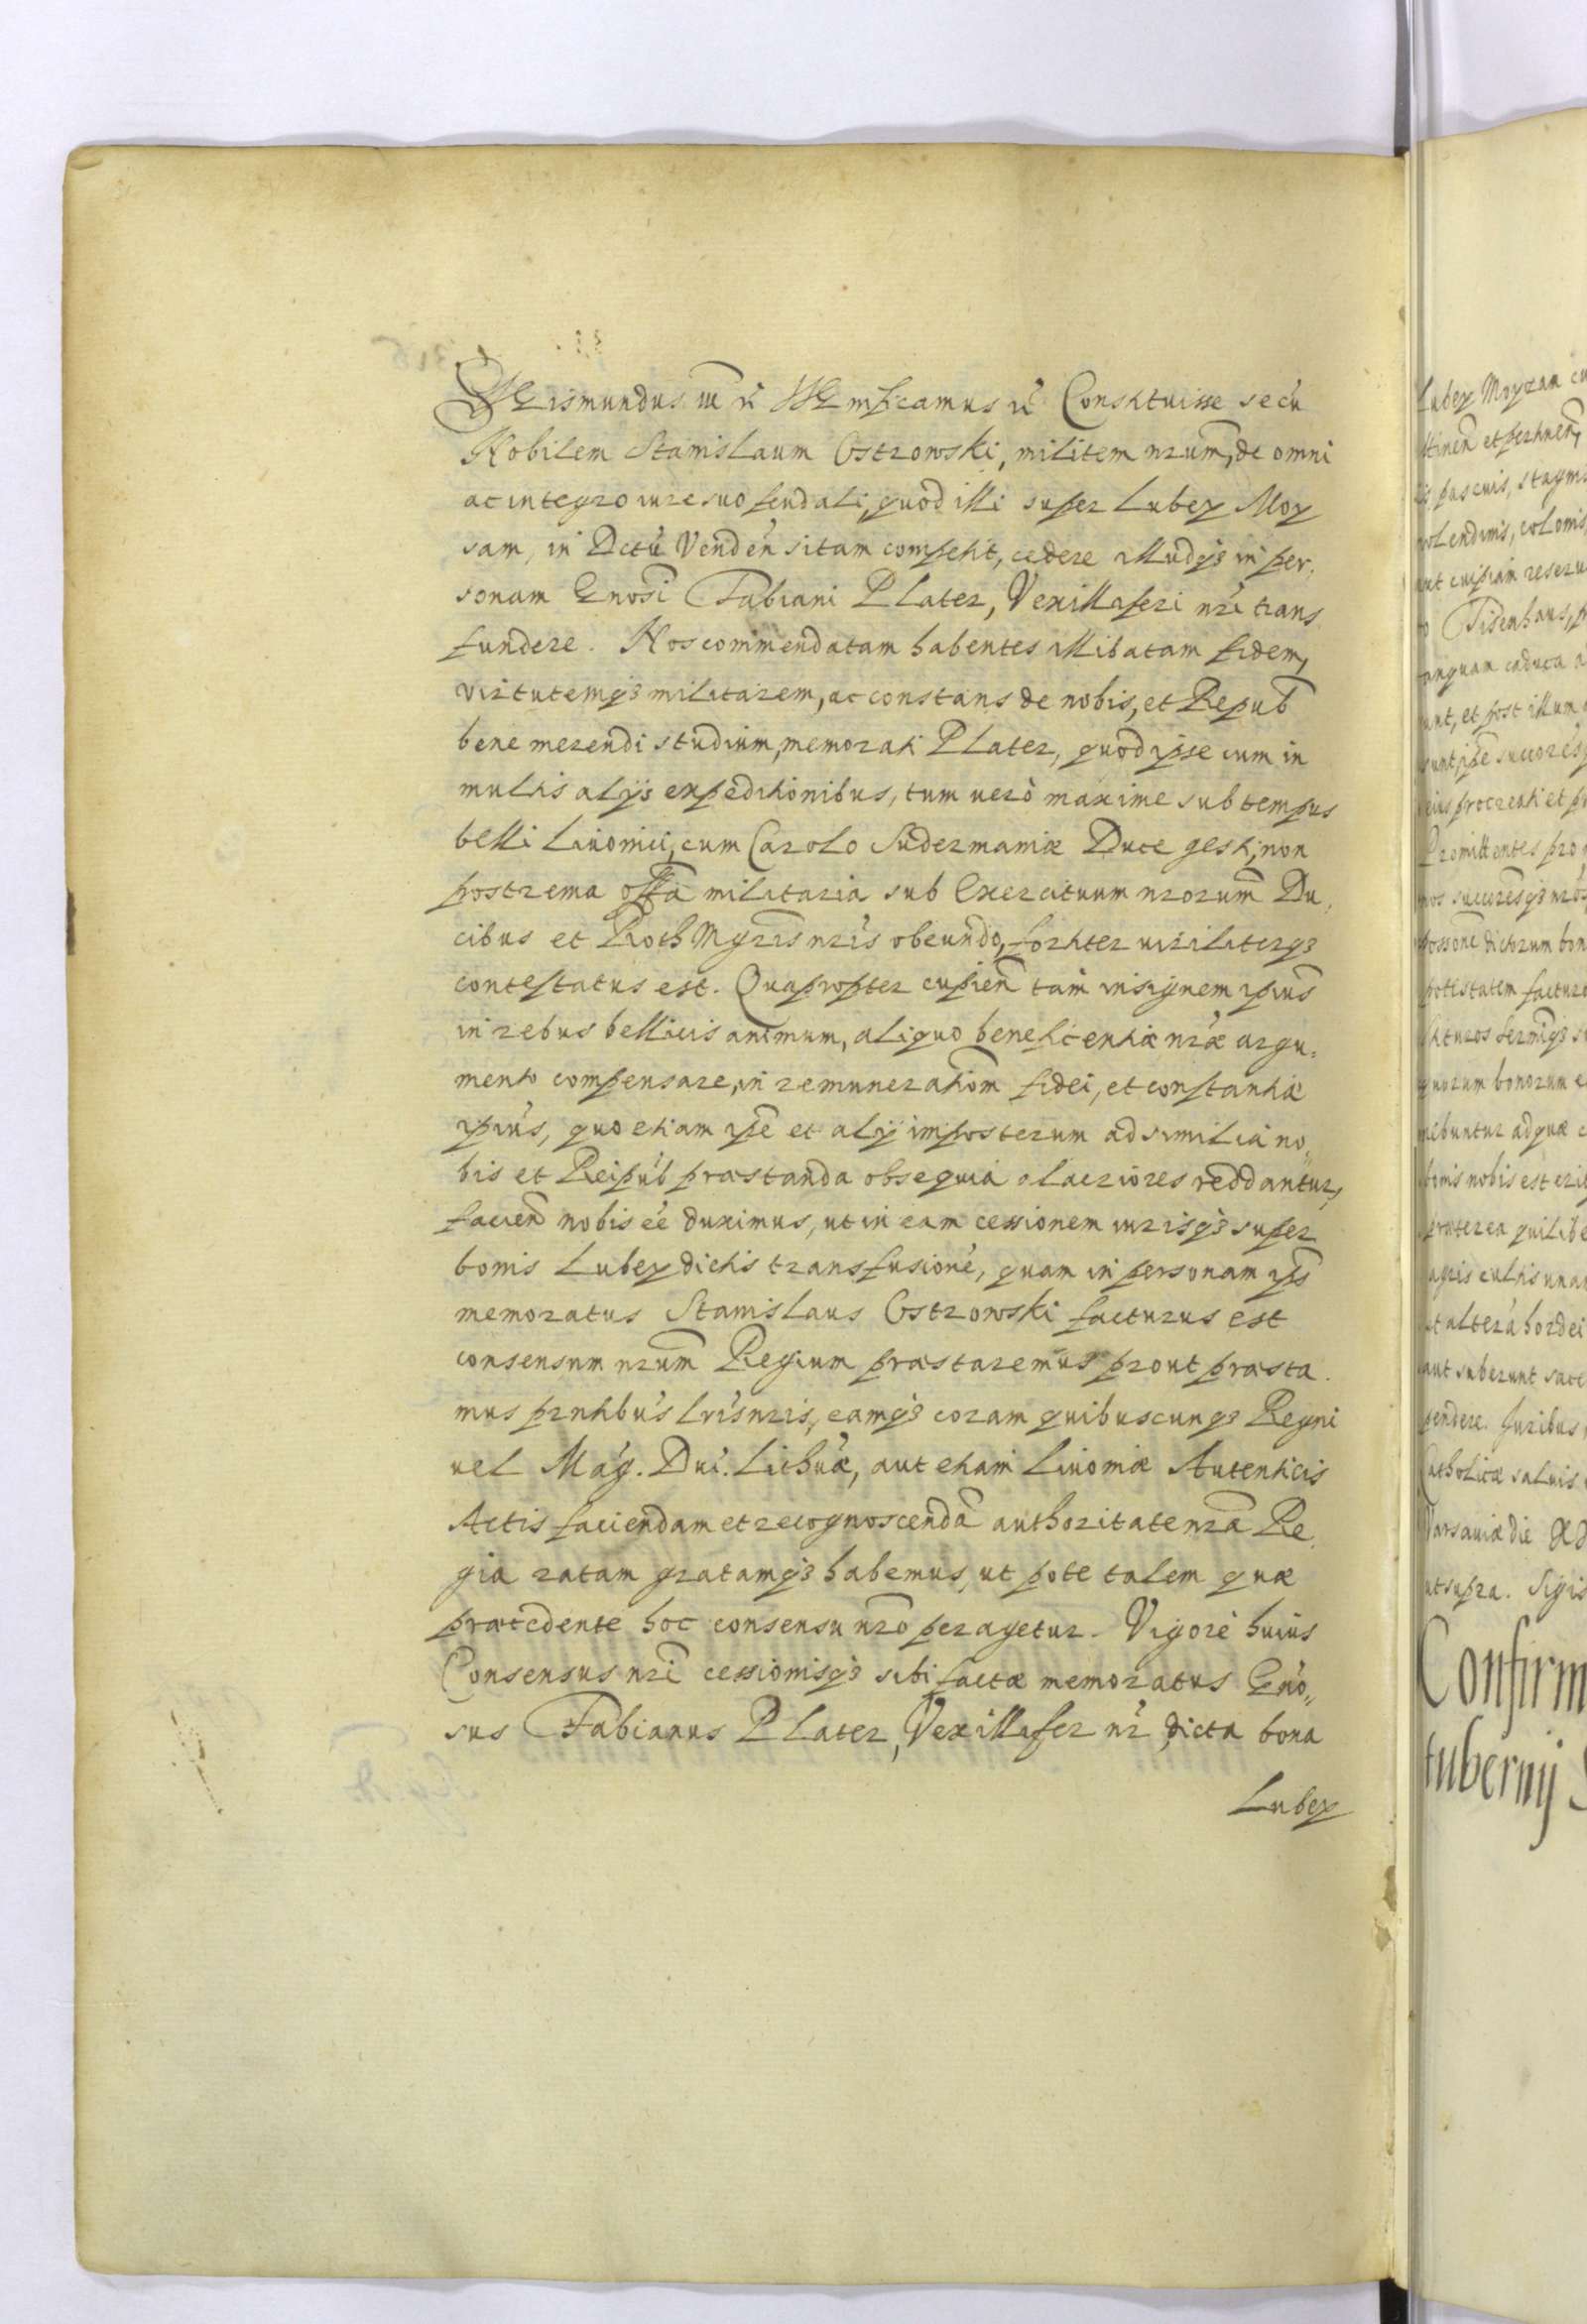 Sigismundus III etc. Significamus etc. Constituisse secū
Nobilem Stanislaum Ostrowski, militem nrum, de omni
ac integro iure suo feudali, quod illi super Lubey Moy
sam, in Dctū Vendeñ sitam competit, cedere illudq3 in per,
sonam Gnosi Fabiani Plater, Vexillaferi nri trans
fundere. Nos commendatam habentes illibatam fidem,
virtutemq3 militarem, ac constans de nobis, et Repub
bene merendi studium, memorati Plater, quod ipse cum in
multis alijs expeditionibus, tum uerò maxime sub tempus
belli Liuonici, cum Carolo Sudermaniæ Duce gesti, non
postrema offa militaria sub Exercituum nrorum Du,
cibus et RothMgris nris obeundo, fortiter uiriliterq3
contestatus est. Quapropter cupieñ tam insignem ipius
in rebus bellicis animum, aliquo beneficentiæ nræ argu,
mento compensare, in remunerationem fidei, et constantiæ
ipius, quo etiam ipe et alij imposterum ad similia no,,
bis et Reipub præstanda obsequia alacriores reddantur,
facieñ nobis ee duximus, ut in eam cessionem iurisq3 super
bonis Lubey dictis transfusionē, quam in personam ips
memoratus Stanislaus Ostrowski facturus est
consensum nrum Regium præstaremus prout præsta.
mus prntibus lris nris, eamq3 coram quibuscunq3 Regni
uel Mag. Dui. Lithuæ, aut etiam Liuoniæ Autenticis
Actis faciendam et recognoscendā authoritate nra Re
gia ratam gratamq3 habemus, ut pote talem quæ
præcedente hoc consensu nro peragetur. Vigore huius
Consensus nri cessionisq3 sibi factæ memoratus Gño,,
sus Fabianus Plater, Vexillafer nr dicta bona
Lubey
Lubey Moyzam cu
ttinen et pertinen,
pascuis, stagnis
molendinis, colonis
aut cuipiam reseru
Tisenhaus, p
tanquam caduca a
unt, et post illum
sunt, ipe succores
eius procreati et p
Promittentes pro
nos succoresq3 nros
possone dictorum bon
potestatem facturo
quorum bonorum e
nebuntur ad quæ c
bonis nobis est eri
præterea quilibe
agris cultis una
et altera hordei
aut suberunt sace
pendere. Juribus
Catholicæ saluis
Varsauiæ die XX
ut supra. Sigis
Confirm
tubernij S